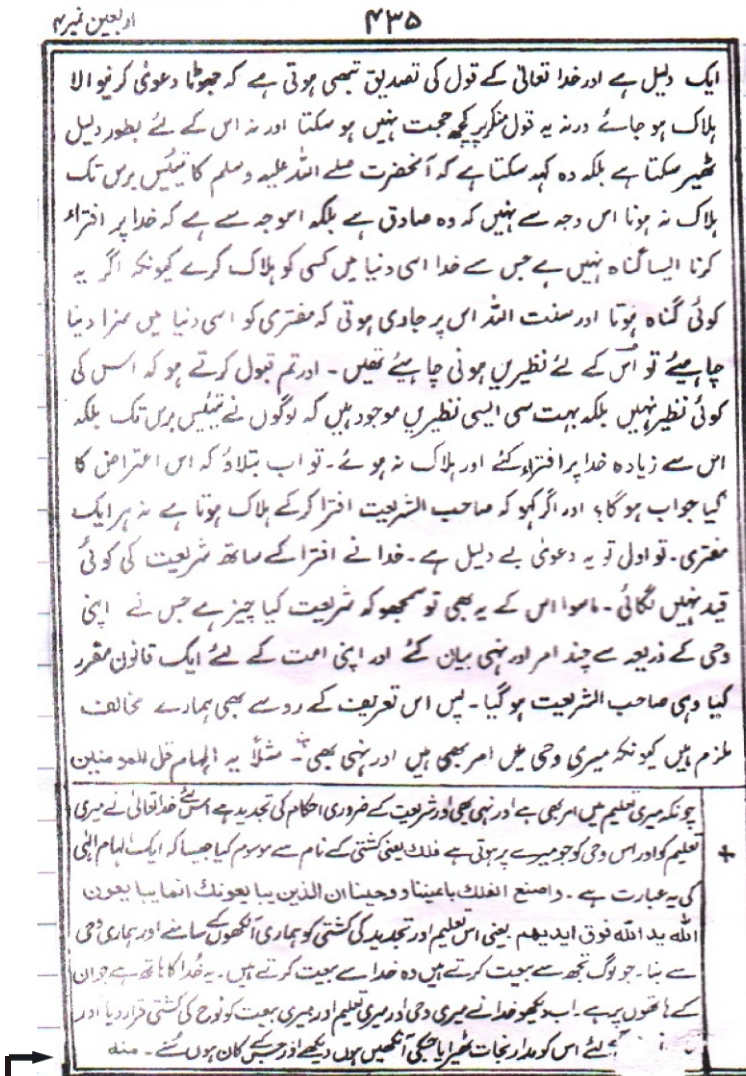 اربعین نمبر۴
۴۳۵
ایک دلیل ہے اور خدا تعالیٰ کے قول کی تصدیق تبھی ہوتی ہے کہ جھوٹا دعویٰ کرنیوالا
ہلاک ہو جائے ورنہ یہ قول منکر پر کچھ حجت نہیں ہو سکتا اور نہ اس کے لئے بطور دلیل
ٹھیر سکتا ہے بلکہ وہ کہہ سکتا ہے کہ آنحضرت صلے اللہ علیہ وسلم کا تیئیس برس تک
ہلاک نہ ہونا اس وجہ سے نہیں کہ وہ صادق ہے بلکہ اسوجہ سے ہے کہ خدا پر افتراء
کرنا ایسا گناہ نہیں ہے جس سے خدا اسی دنیا میں کسی کو ہلاک کرے کیونکہ اگر یہ
کوئی گناہ ہوتا اور سنت اللہ اس پر جاری ہوتی کہ مفتری کو اسی دنیا میں سزا دینا
چاہیئے تو اُس کے لئے نظیریں ہونی چاہیئے تھیں۔ اور تم قبول کرتے ہو کہ اس کی
کوئی نظیر نہیں بلکہ بہت سی ایسی نظیریں موجود ہیں کہ لوگوں نے تیئیس برس تک بلکہ
اس سے زیادہ خدا پر افتراء کئے اور ہلاک نہ ہوئے۔ تو اب بتلاؤ کہ اس اعتراض کا
کیا جواب ہوگا؟ اور اگر کہو کہ صاحب الشریعت افترا کرکے ہلاک ہوتا ہے نہ ہر ایک
مفتری۔ تو اول تو یہ دعویٰ بے دلیل ہے۔ خدا نے افترا کے ساتھ شریعت کی کوئی
قید نہیں لگائی۔ ماسوا اس کے یہ بھی تو سمجھو کہ شریعت کیا چیز ہے جس نے اپنی
وحی کے ذریعہ سے چند امر اور نہی بیان کئے اور اپنی امت کے لئے ایک قانون مقرر
کیا وہی صاحب الشریعت ہوگیا۔ پس اس تعریف کے رو سے بھی ہمارے مخالف
ملزم ہیں کیونکہ میری وحی میں امر بھی ہیں اور نہی بھی۔ مثلاً یہ الہام قل للمومنین
چونکہ میری تعلیم میں امر بھی ہے اور نہی بھی اور شریعت کے ضروری احکام کی تجدید ہے اس لئے خدا تعالیٰ نے میری
تعلیم کو اور اس وحی کو جو میرے پر ہوتی ہے فلک یعنی کشتی کے نام سے موسوم کیا جیسا کہ ایک الہام الٰہی
کی یہ عبارت ہے۔ واصنع الفلك باعيننا ووحينا ان الذين يبايعونك انما يبايعون
الله يد الله فوق ايديهم۔ یعنی اس تعلیم اور تجدید کی کشتی کو ہماری آنکھوں کے سامنے اور ہماری وحی
سے بنا۔ جو لوگ تجھ سے بیعت کرتے ہیں وہ خدا سے بیعت کرتے ہیں۔ یہ خدا کا ہاتھ ہے جو ان
کے ہاتھوں پر ہے۔ اب دیکھو خدا نے میری وحی اور میری تعلیم اور میری بیعت کو نوح کی کشتی قرار دیا اور
لئے اس کو مدار نجات ٹھیرایا جسکی آنکھیں ہوں دیکھے اور جس کے کان ہوں سُنے۔ منہ